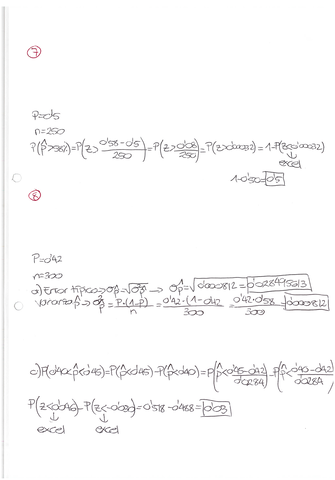 7
P=0'5
n=250
P(p̂>58%)=P(z>0'58-0'5/250)=P(z>0'08/250)=P(z>0'00032)=1-P(z<0'00032)
↓
excel
1-0'50=0'5
8
P=0'42
n=300
a) Error típico→σp̂=√σ²p̂ → σp̂=√0'000812=0'028495613
varianza p̂→σ²p̂=P·(1-P)/n=0'42·(1-0'42)/300=0'42·0'58/300=0'000812
c) P(0'40<p̂<0'45)=P(p̂<0'45)-P(p̂<0'40)=P(p̂<0'45-0'42/0'0284)-P(p̂<0'40-0'42/0'0284)
P(z<0'046)-P(z<-0'030)=0'518-0'488=0'03
↓ ↓
excel excel